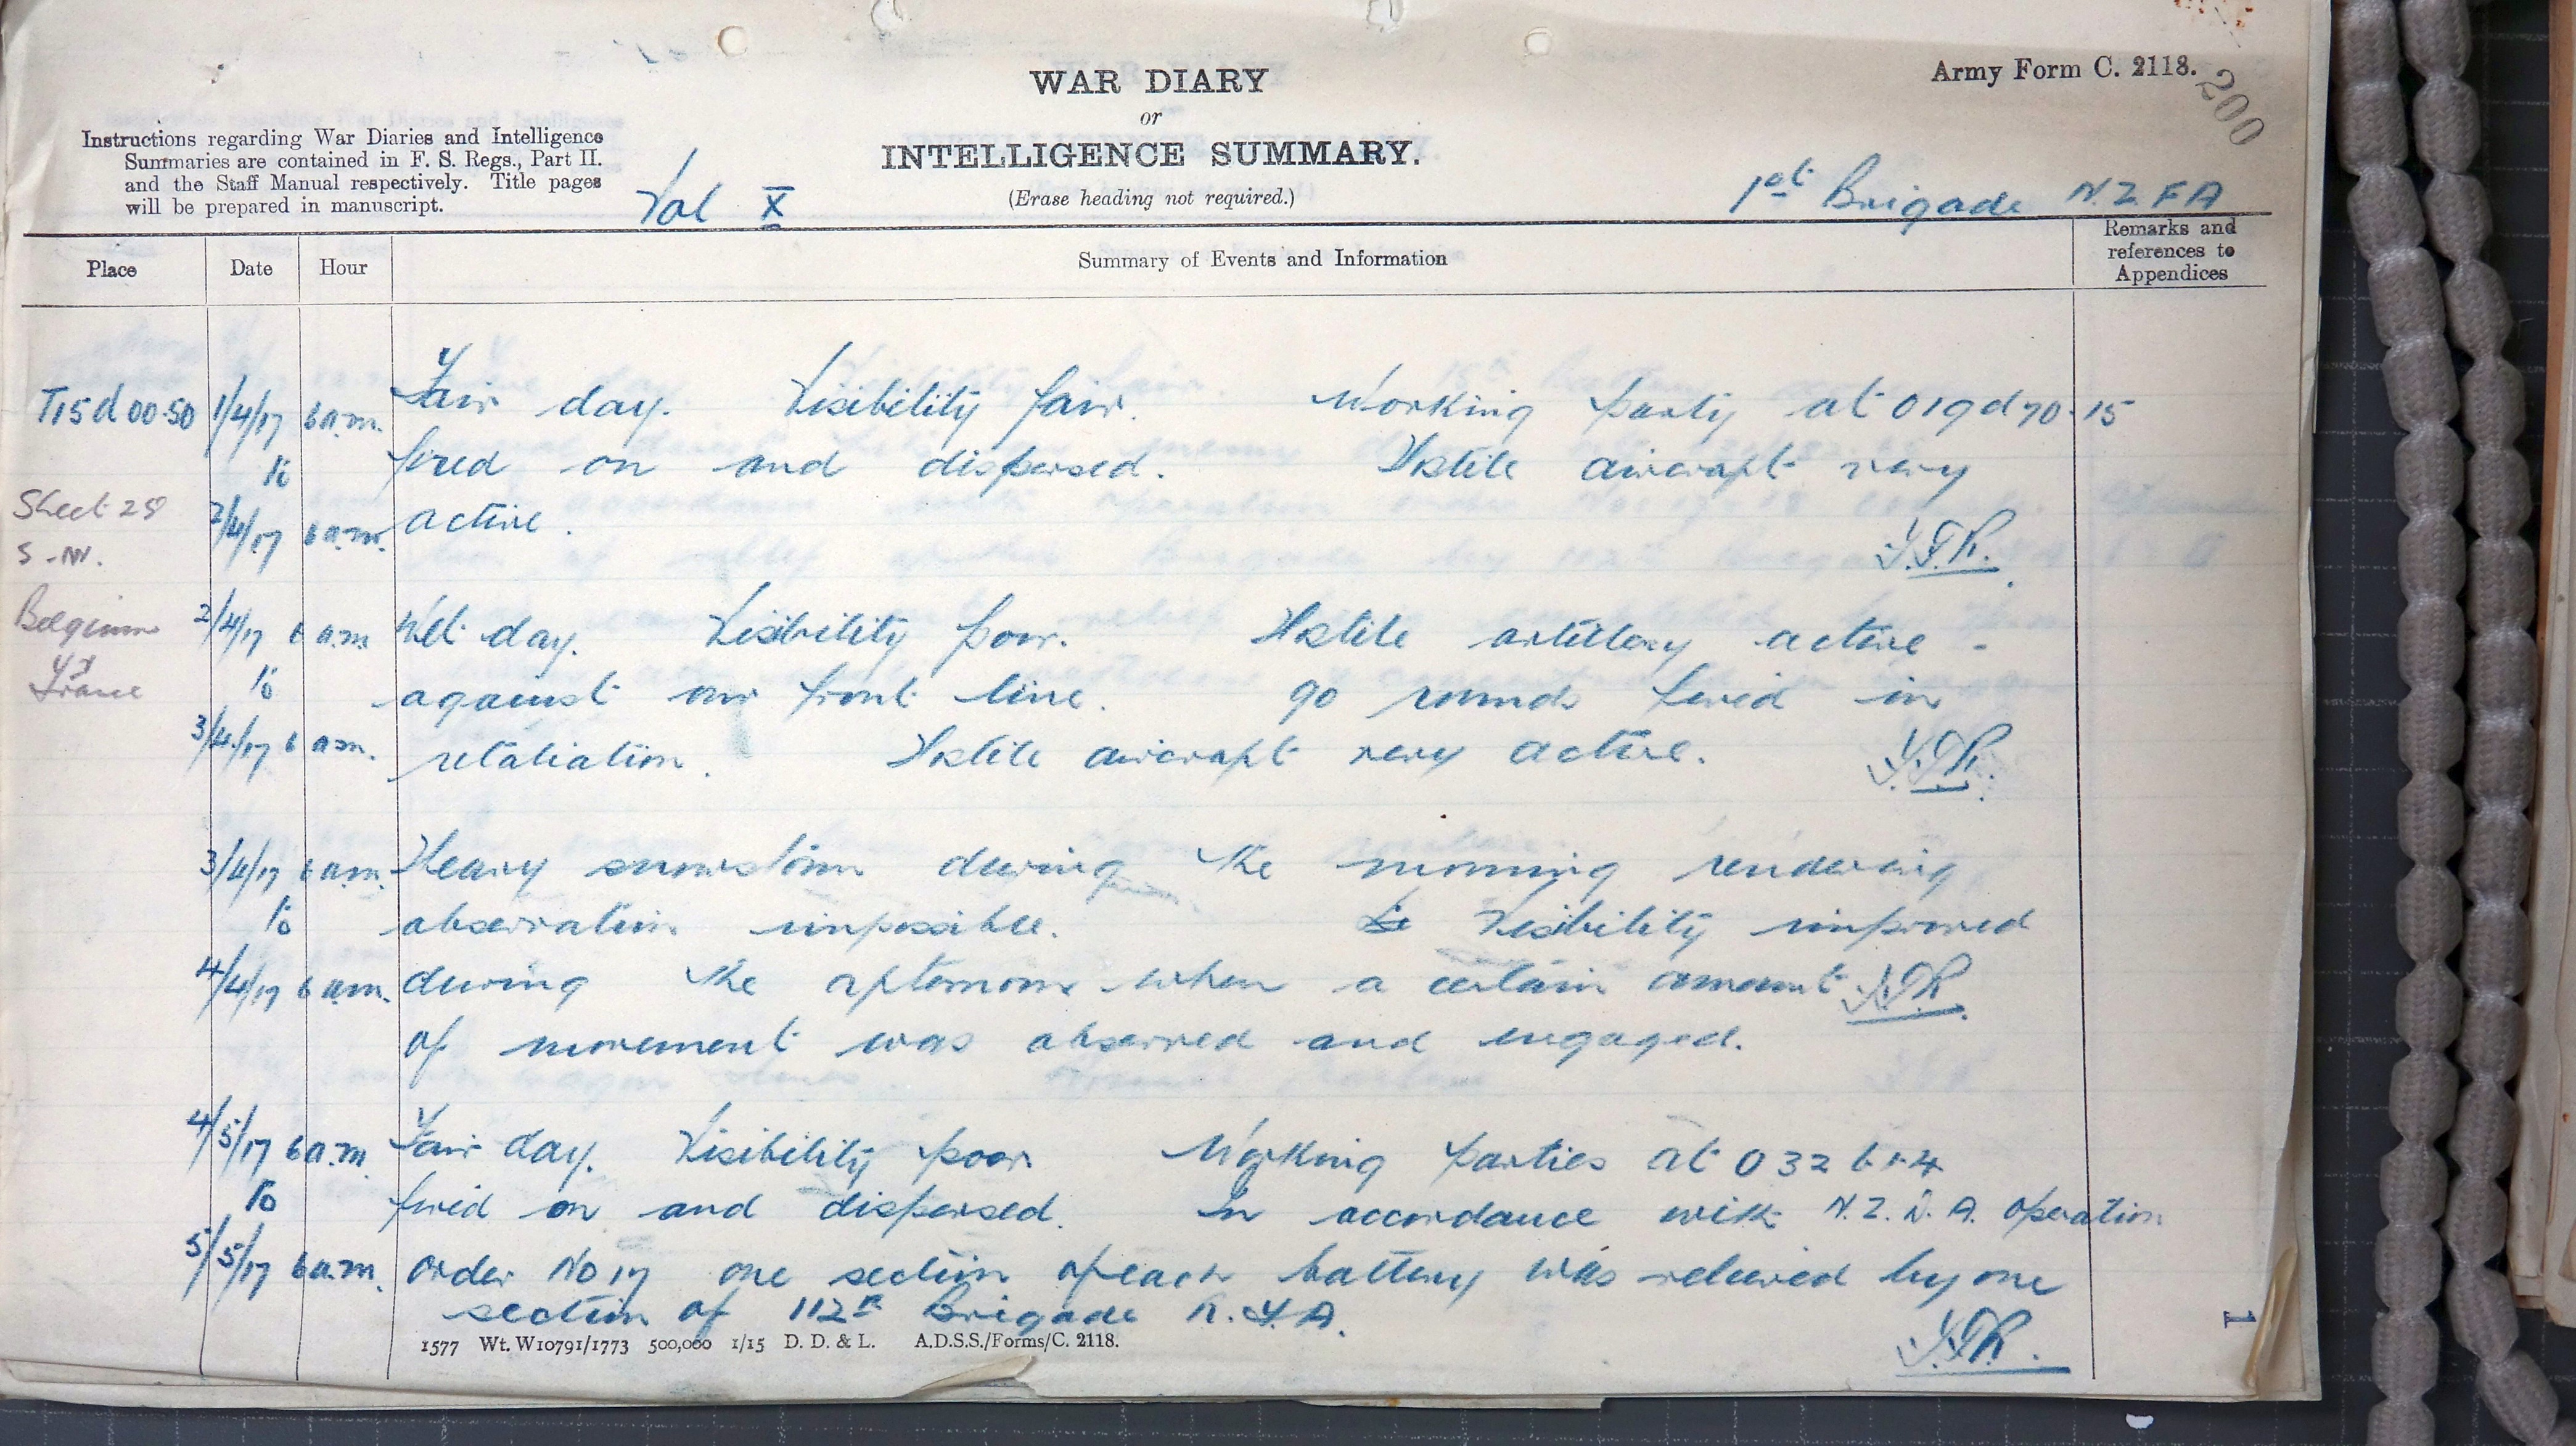 WAR DIARY
or
INTELLIGENCE SUMMARY.
(Erase heading not required.)
Army Form C. 2118.
200
Instructions regarding War Diaries and Intelligence
Summaries are contained in F. S. Regs., Part II.
and the Staff Manual respectively. Title pages
will be prepared in manuscript.
Vol X
1st Brigade N.Z.F.A
Place Date Hour Summary of Events and Information Remarks and references to Appendices
T15d00.50 1/4/17 6 a.m. Fair day. Visibility fair. Working party at O19d70.15
to fired on and dispersed. Hostile aircraft very
Sheet 28
2/4/17 6 a.m. active.
S.W.
Belgium 2/4/17 6 a.m. Wet day. Visibility poor. Hostile artillery active -
& France to against our front line. 90 rounds fired in
3/4/17 6 a.m. retaliation. Hostile aircraft very active.
3/4/17 6 a.m. Heavy snowstorm during the morning rendering
to observation impossible. Visibility improved
4/4/17 6 a.m. during the afternoon when a certain amount
of movement was observed and engaged.
4/5/17 6 a.m. Fair day. Visibility poor Working parties at O32b1.4
to fired on and dispersed. In accordance with N.Z.D.A. Operation
5/5/17 6 a.m. order No 17 one section of each battery was relieved by one
section of 112th Brigade R.F.A.
1577 Wt. W10791/1773 500,000 1/15 D. D. & L. A.D.S.S./Forms/C. 2118.
1